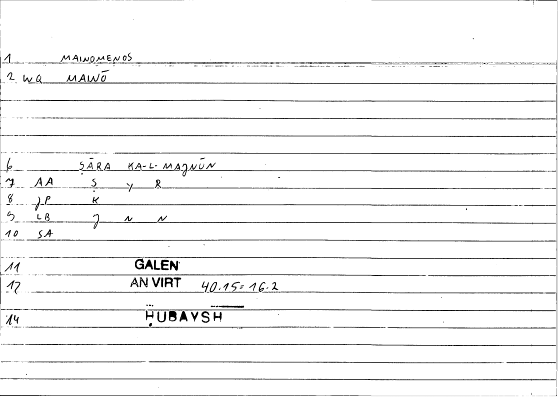 1 MAINOMENOS
2 WQ MAINŌ
6 ṢĀRA KA-L-MAJNŪN
7 AA Ṣ Y R
8 JP K
9 LB J N N
10 SA
11 GALEN
12 AN VIRT 40.15=16.2
14 ḤUBAYSH